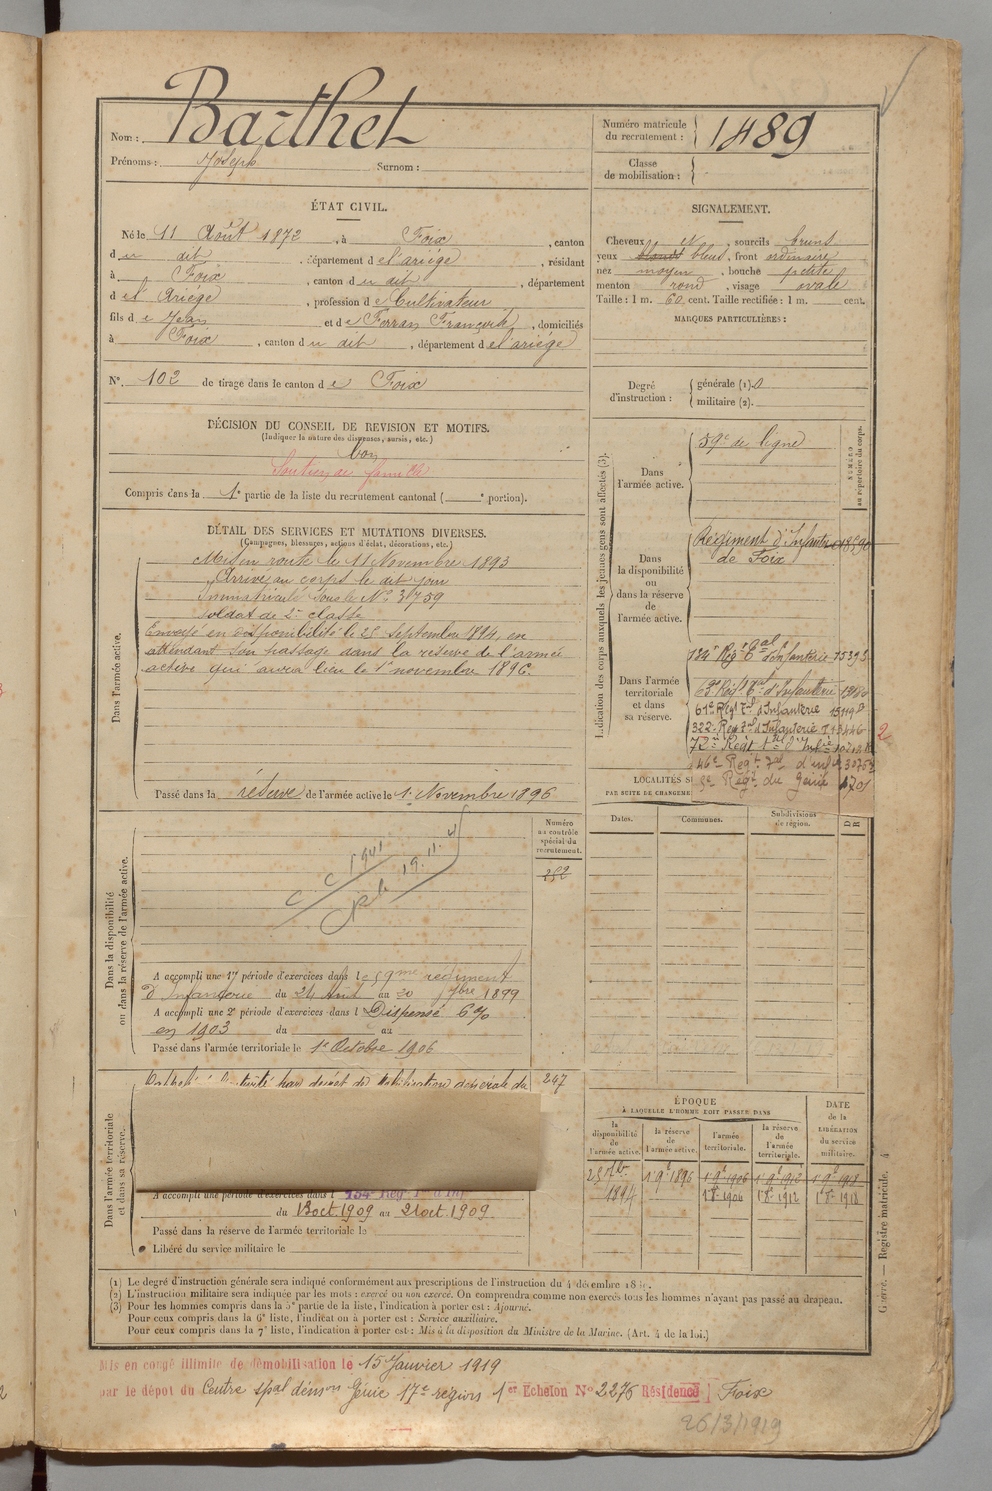 Nom : Barthet
Prénoms : Joseph Surnom :
Numéro matricule du recrutement : 1489
Classe de mobilisation :
ÉTAT CIVIL.
Né le 11 Août 1872, à Foix, canton
du dit, département de l'ariège, résidant
à Foix, canton du dit, département
de l'Ariège, profession de Cultivateur
fils de Jean et de Ferran Françoise, domiciliés
à Foix, canton du dit, département de l'ariège
N° 102 de tirage dans le canton de Foix
DÉCISION DU CONSEIL DE REVISION ET MOTIFS.
(Indiquer la nature des dispenses, sursis, etc.)
bon
Soutien de famille
Compris dans la 1e partie de la liste du recrutement cantonal ( e portion).
SIGNALEMENT.
Cheveux et, sourcils bruns
yeux bleus, front ordinaire
nez moyen, bouche petite
menton rond, visage ovale
Taille : 1 m. 60 cent. Taille rectifiée : 1 m. cent.
MARQUES PARTICULIÈRES :
Degré d'instruction : générale (1). militaire (2).
DÉTAIL DES SERVICES ET MUTATIONS DIVERSES.
(Campagnes, blessures, actions d'éclat, décorations, etc.)
Dans l'armée active.
Mis en route le 11 Novembre 1893
Arrivé au corps le dit jour
Immatriculé sous le N° 3759
soldat de 2e classe
Envoyé en disponibilité le 25 septembre 1894, en
attendant son passage dans la réserve de l'armée
active qui aura lieu le 1er novembre 1896.
Passé dans la réserve de l'armée active le 1er Novembre 1896
Indication des corps auxquels les jeunes gens sont affectés (3).
NUMÉRO au répertoire du corps.
Dans l'armée active.
59e de ligne
Dans la disponibilité ou dans la réserve de l'armée active.
Régiment d'Infanterie
de Foix
Dans l'armée territoriale et dans sa réserve.
134e Régt Tal d'Infanterie
63e Régt Tal d'Infanterie
61e Régt Tal d'Infanterie
322e Regt Tal d'Infanterie
72e Régt Tal d'Infie
46e Régt Tal d'inf
Régt du Génie
LOCALITÉS
PAR SUITE DE CHANGEME
Dates. Communes. Subdivisions de région.
Dans la disponibilité ou dans la réserve de l'armée active.
Numéro au contrôle spécial du recrutement.
252
1941
A accompli une 1re période d'exercices dans le 59me regiment
d'Infanterie du 24 Août au 20 7bre 1899
A accompli une 2e période d'exercices dans l Dispensé 6%
en 1903 du au
Passé dans l'armée territoriale le 1er Octobre 1906
Dans l'armée territoriale et dans sa réserve.
décret de Mobilisation générale du
247
A accompli une période d'exercices dans l 134e Rég
du 13 oct 1909 au 21 oct. 1909.
Passé dans la réserve de l'armée territoriale le
Libéré du service militaire le
ÉPOQUE
À LAQUELLE L'HOMME DOIT PASSER DANS
la disponibilité de l'armée active. la réserve de l'armée active. l'armée territoriale. la réserve de l'armée territoriale.
DATE de la LIBÉRATION du service militaire.
25 7bre 1894 1er 9e 1896 1er 9e 1906 1er 9e 1912 1er 9e 1918
1er 8e 1906 1er 8e 1912 1er 8e 1918
Guerre. — Registre matricule. 4
(1) Le degré d'instruction générale sera indiqué conformément aux prescriptions de l'instruction du 4 décembre
(2) L'instruction militaire sera indiquée par les mots : exercé ou non exercé. On comprendra comme non exercés tous les hommes n'ayant pas passé au drapeau.
(3) Pour les hommes compris dans la 5e partie de la liste, l'indication à porter est : Ajourné.
Pour ceux compris dans la 6e liste, l'indication à porter est : Service auxiliaire.
Pour ceux compris dans la 7e liste, l'indication à porter est : Mis à la disposition du Ministre de la Marine. (Art. 4 de la loi.)
Mis en congé illimité de démobilisation le 15 Janvier 1919
par le dépôt du Centre spal démon Génie 17e région 1er Echelon N° 2276 Résidence Foix
26/3/1919